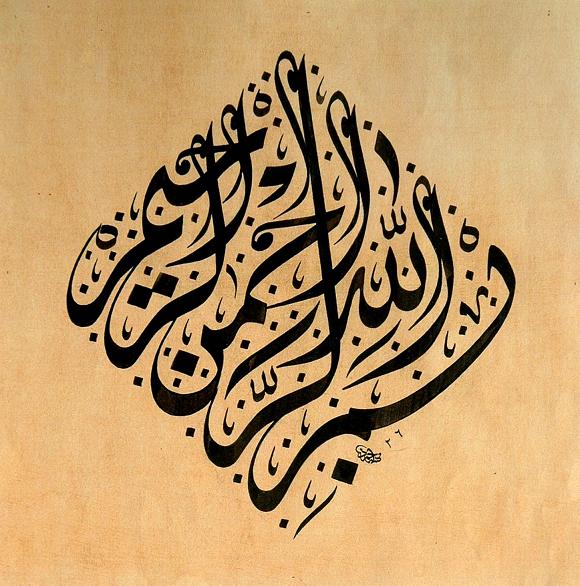 بسم الله الرحمن الرحيم
٢٦